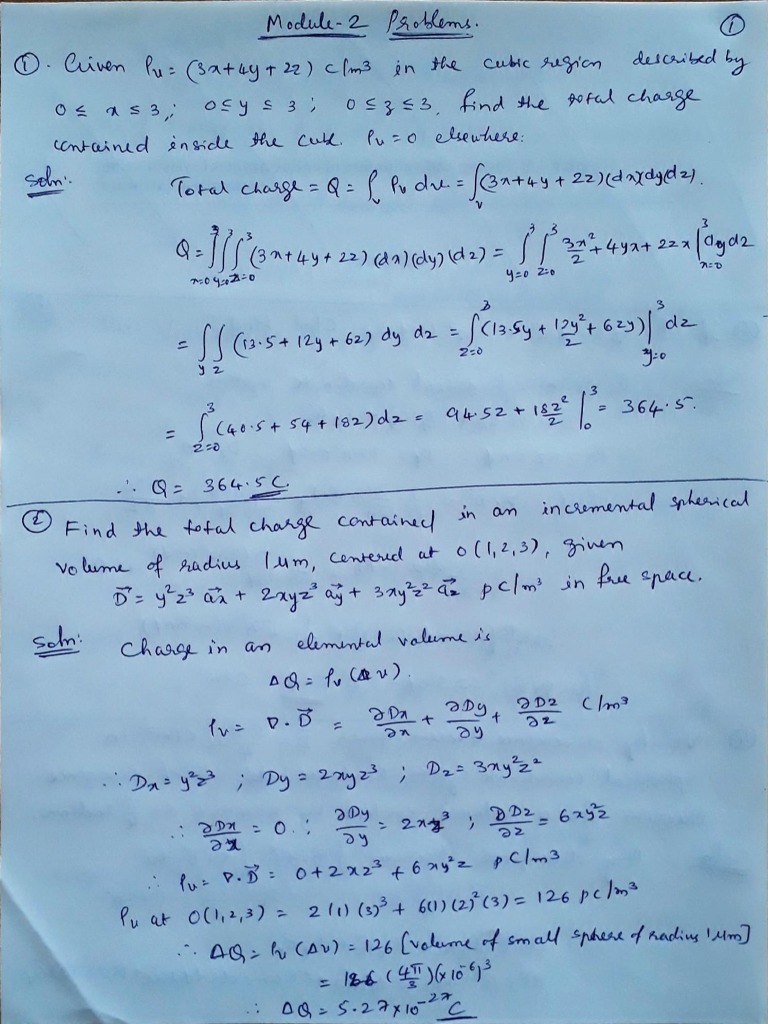 Module-2 Problems. ①
①. Given ρv = (3x+4y+2z) c/m3 in the cubic region described by
0 ≤ x ≤ 3; 0 ≤ y ≤ 3; 0 ≤ z ≤ 3, find the total charge
contained inside the cube. ρv = 0 elsewhere.
Soln: Total charge = Q = ∫v ρv dv = ∫v (3x+4y+2z)(dx)(dy)(dz).
Q = ∫∫∫ (3x+4y+2z) (dx)(dy)(dz) = ∫³y=0 ∫³z=0 3x²/2 + 4yx + 2zx |³x=0 dy dz
= ∫y∫z (13.5+12y+6z) dy dz = ∫³z=0 (13.5y + 12y²/2 + 6zy)|³y=0 dz
= ∫³z=0 (40.5+54+18z)dz = 94.5z + 18z²/2 |³0 = 364.5.
∴ Q = 364.5 C.
② Find the total charge contained in an incremental spherical
volume of radius 1 μm, centered at o(1,2,3), given
D⃗ = y²z³ a⃗x + 2xyz³ a⃗y + 3xy²z² a⃗z pc/m³ in free space.
Soln: Charge in an elemental volume is
ΔQ = ρv (Δv).
ρv = ∇.D⃗ = ∂Dx/∂x + ∂Dy/∂y + ∂Dz/∂z C/m³
∴ Dx = y²z³ ; Dy = 2xyz³ ; Dz = 3xy²z²
∴ ∂Dx/∂x = 0. ; ∂Dy/∂y = 2xz³ ; ∂Dz/∂z = 6xy²z
∴ ρv = ∇.D⃗ = 0+2xz³ + 6xy²z pC/m3
ρv at o(1,2,3) = 2(1)(3)³ + 6(1)(2)²(3) = 126 pc/m³
∴ ΔQ = ρv (Δv) = 126 [volume of small sphere of radius 1 μm]
= 126 (4π/3)(x10⁻⁶)³
∴ ΔQ = 5.27x10⁻²⁷ C